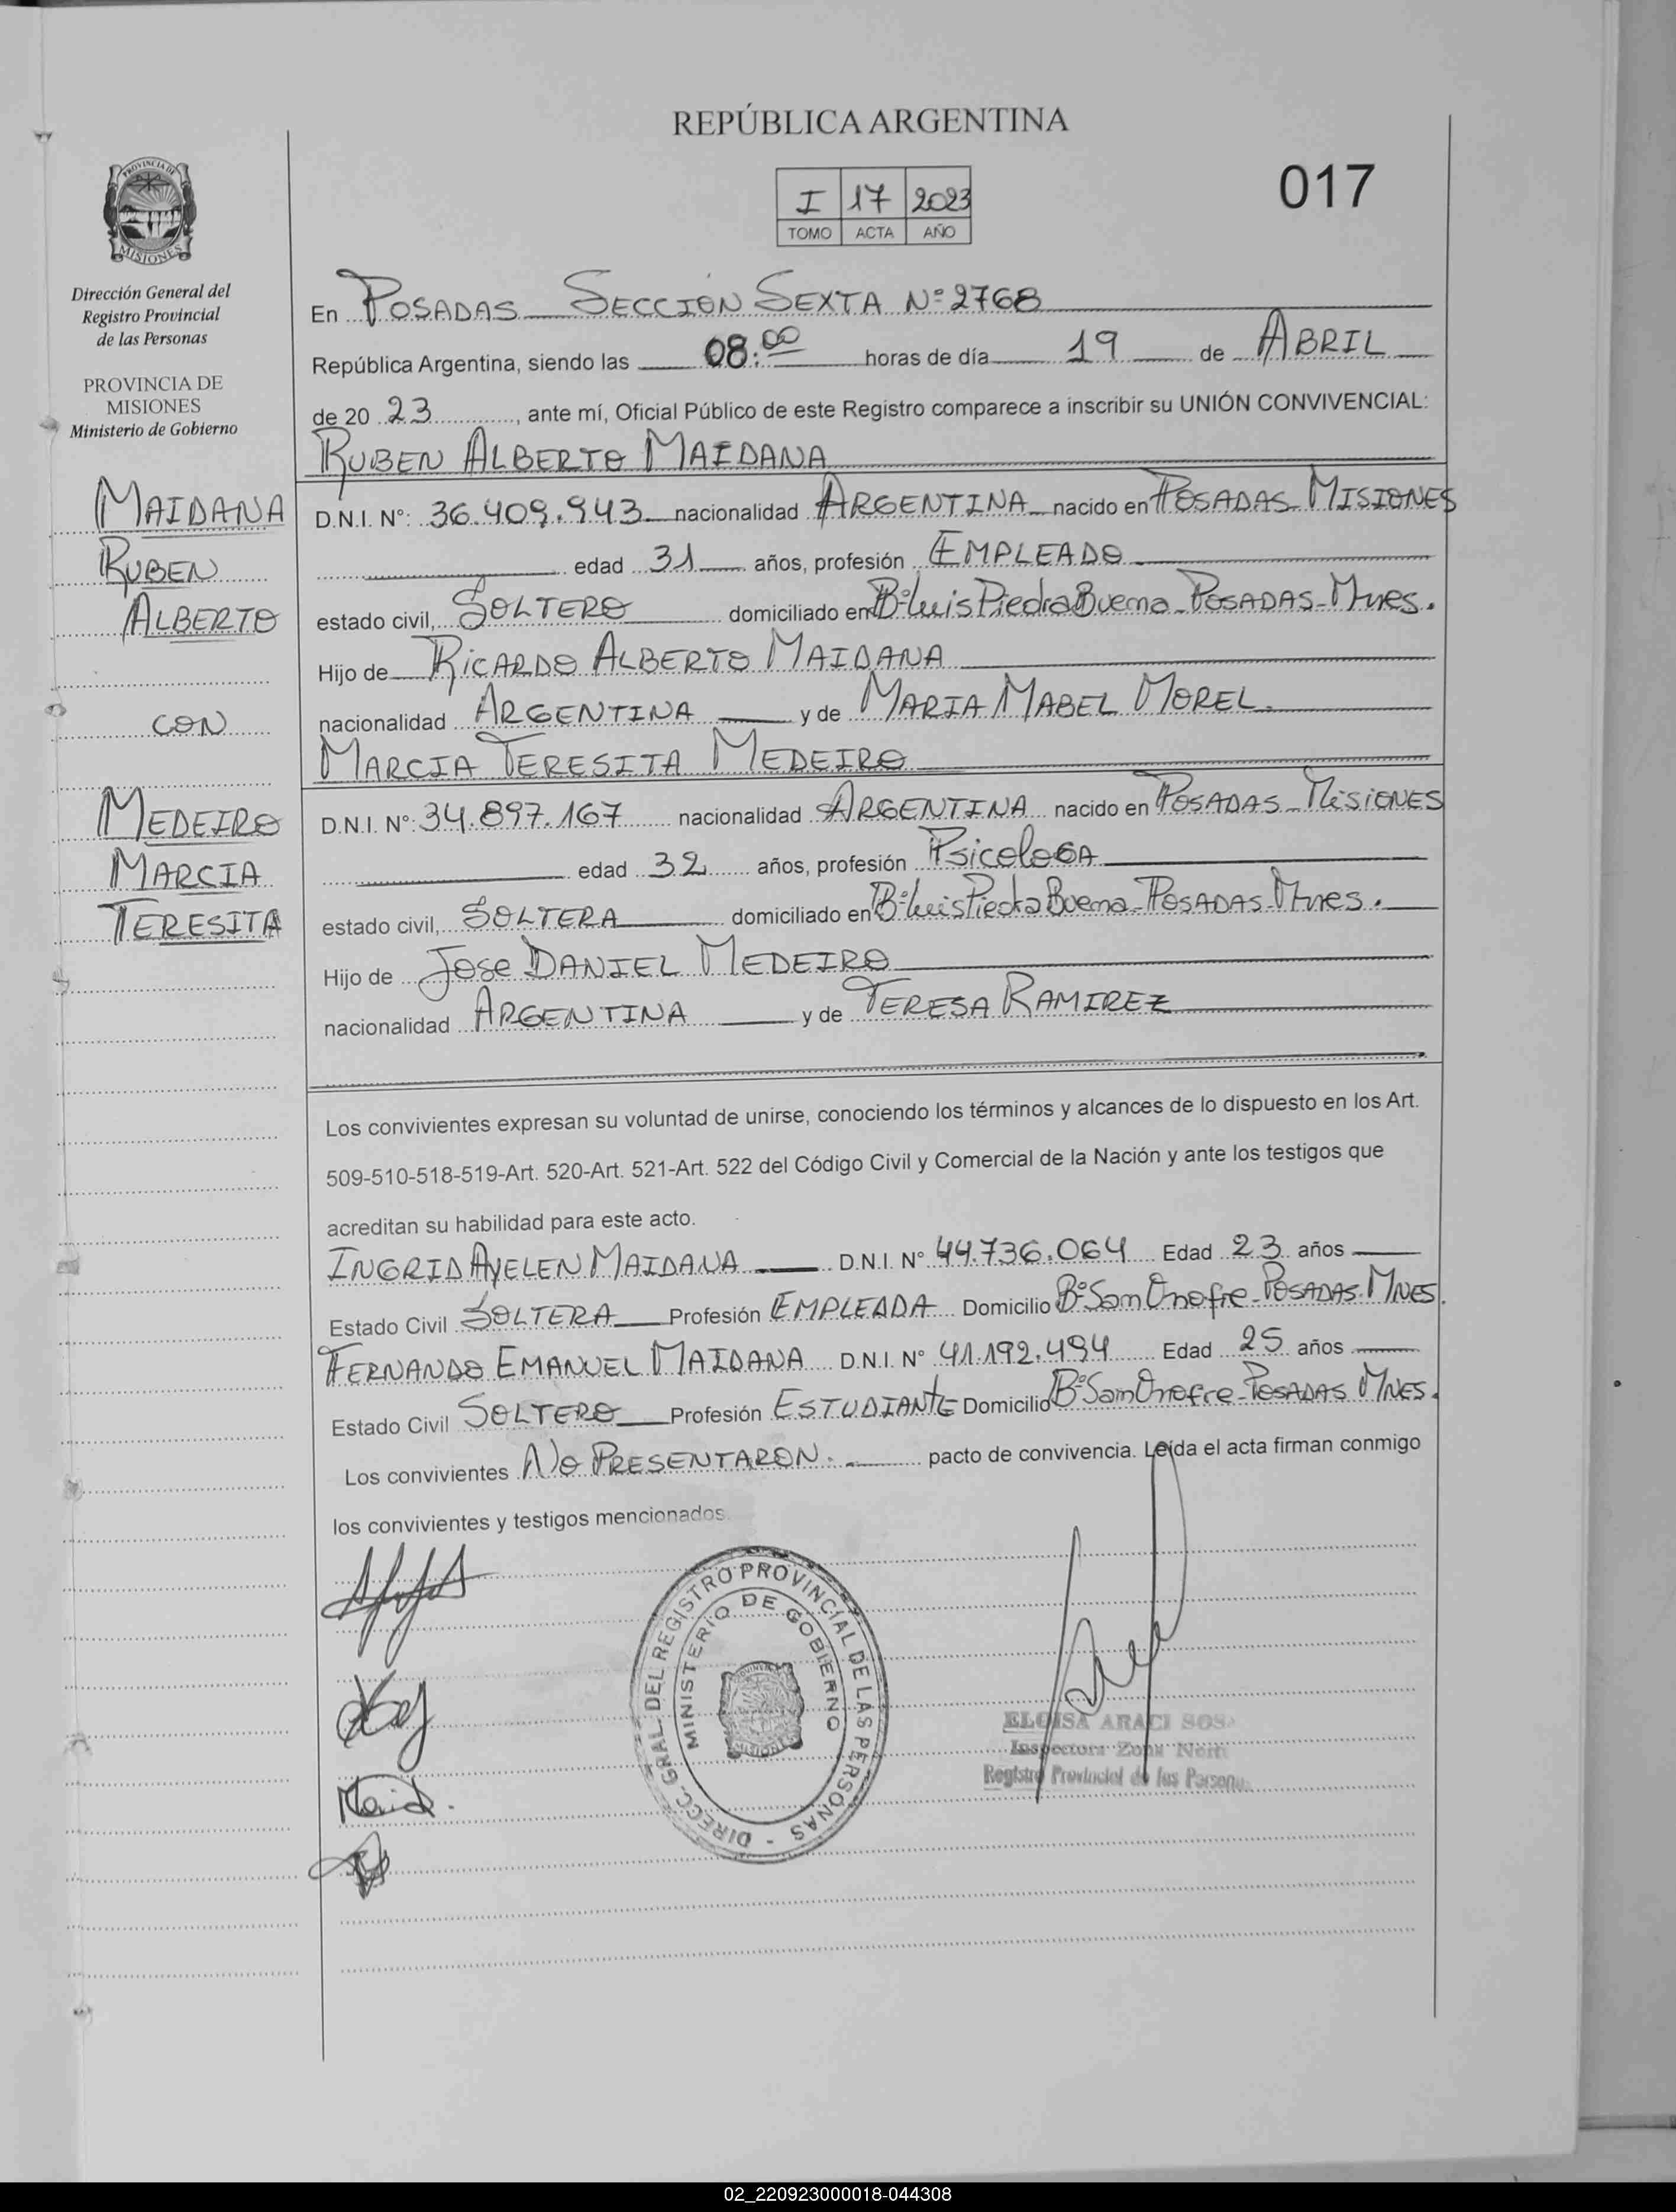 REPÚBLICA ARGENTINA
017
I 17 2023
TOMO ACTA AÑO
PROVINCIA DE
MISIONES
Dirección General del
Registro Provincial
de las Personas
PROVINCIA DE
MISIONES
Ministerio de Gobierno
MAIDANA
RUBEN
ALBERTO
CON
MEDEIRO
MARCIA
TERESITA
En POSADAS SECCION SEXTA Nº 2768
República Argentina, siendo las 08:00 horas de día 19 de ABRIL
de 20 23, ante mí, Oficial Público de este Registro comparece a inscribir su UNIÓN CONVIVENCIAL:
RUBEN ALBERTO MAIDANA
D.N.I. Nº: 36.409.943 nacionalidad ARGENTINA nacido en POSADAS-MISIONES
edad 31 años, profesión EMPLEADO
estado civil, SOLTERO domiciliado en Bº Luis Piedra Buena-POSADAS-Mnes.
Hijo de RICARDO ALBERTO MAIDANA
nacionalidad ARGENTINA y de MARIA MABEL MOREL.
MARCIA TERESITA MEDEIRO
D.N.I. Nº: 34.897.167 nacionalidad ARGENTINA nacido en POSADAS-MISIONES
edad 32 años, profesión PsicoloGA
estado civil, SOLTERA domiciliado en Bº Luis Piedra Buena-POSADAS-Mnes.
Hijo de Jose DANIEL MEDEIRO
nacionalidad ARGENTINA y de TERESA RAMIREZ
Los convivientes expresan su voluntad de unirse, conociendo los términos y alcances de lo dispuesto en los Art.
509-510-518-519-Art. 520-Art. 521-Art. 522 del Código Civil y Comercial de la Nación y ante los testigos que
acreditan su habilidad para este acto.
INGRID AYELEN MAIDANA D.N.I. Nº 44.736.064 Edad 23 años
Estado Civil SOLTERA Profesión EMPLEADA Domicilio Bº San Onofre-POSADAS-MNES.
FERNANDO EMANUEL MAIDANA D.N.I. Nº 41.192.494 Edad 25 años
Estado Civil SOLTERO Profesión ESTUDIANTE Domicilio Bº San Onofre-POSADAS MNES.
Los convivientes NO PRESENTARON. pacto de convivencia. Leída el acta firman conmigo
los convivientes y testigos mencionados.
DIRECC. GRAL. DEL REGISTRO PROVINCIAL DE LAS PERSONAS -
MINISTERIO DE GOBIERNO
ELOISA ARACI SOSA
Inspectora Zona Norte
Registro Provincial de las Personas
02_220923000018-044308